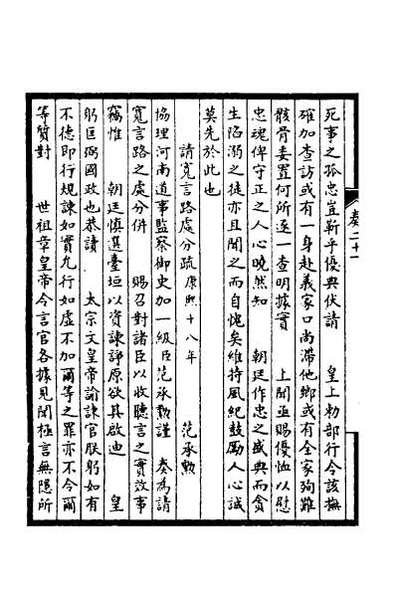 死事之孤忠豈靳乎優典伏請　皇上勅部行令該撫
確加查訪或有一身赴義家口尚滯他鄉或有全家殉難
骸骨委置何所逐一查明據實　上聞亟賜優恤以慰
忠魂俾守正之人心曉然知　朝廷作忠之盛典而貪
生陷溺之徒亦且聞之而自愧矣維持風紀鼓勵人心誠
莫先於此也
請寬言路處分疏康熙十八年　范承勲
協理河南道事監察御史加一級臣范承勲謹　奏為請
寬言路之處分併　賜召對諸臣以收聽言之實效事
竊惟　朝廷慎選臺垣以資諫諍原欲其啟迪　皇
躬匡弼國政也恭讀　太宗文皇帝諭諫官朕躬如有
不德即行規諫如實允行如虛不加爾等之罪亦不令爾
等質對　世祖章皇帝今言官各據見聞極言無隱所
奏二十一